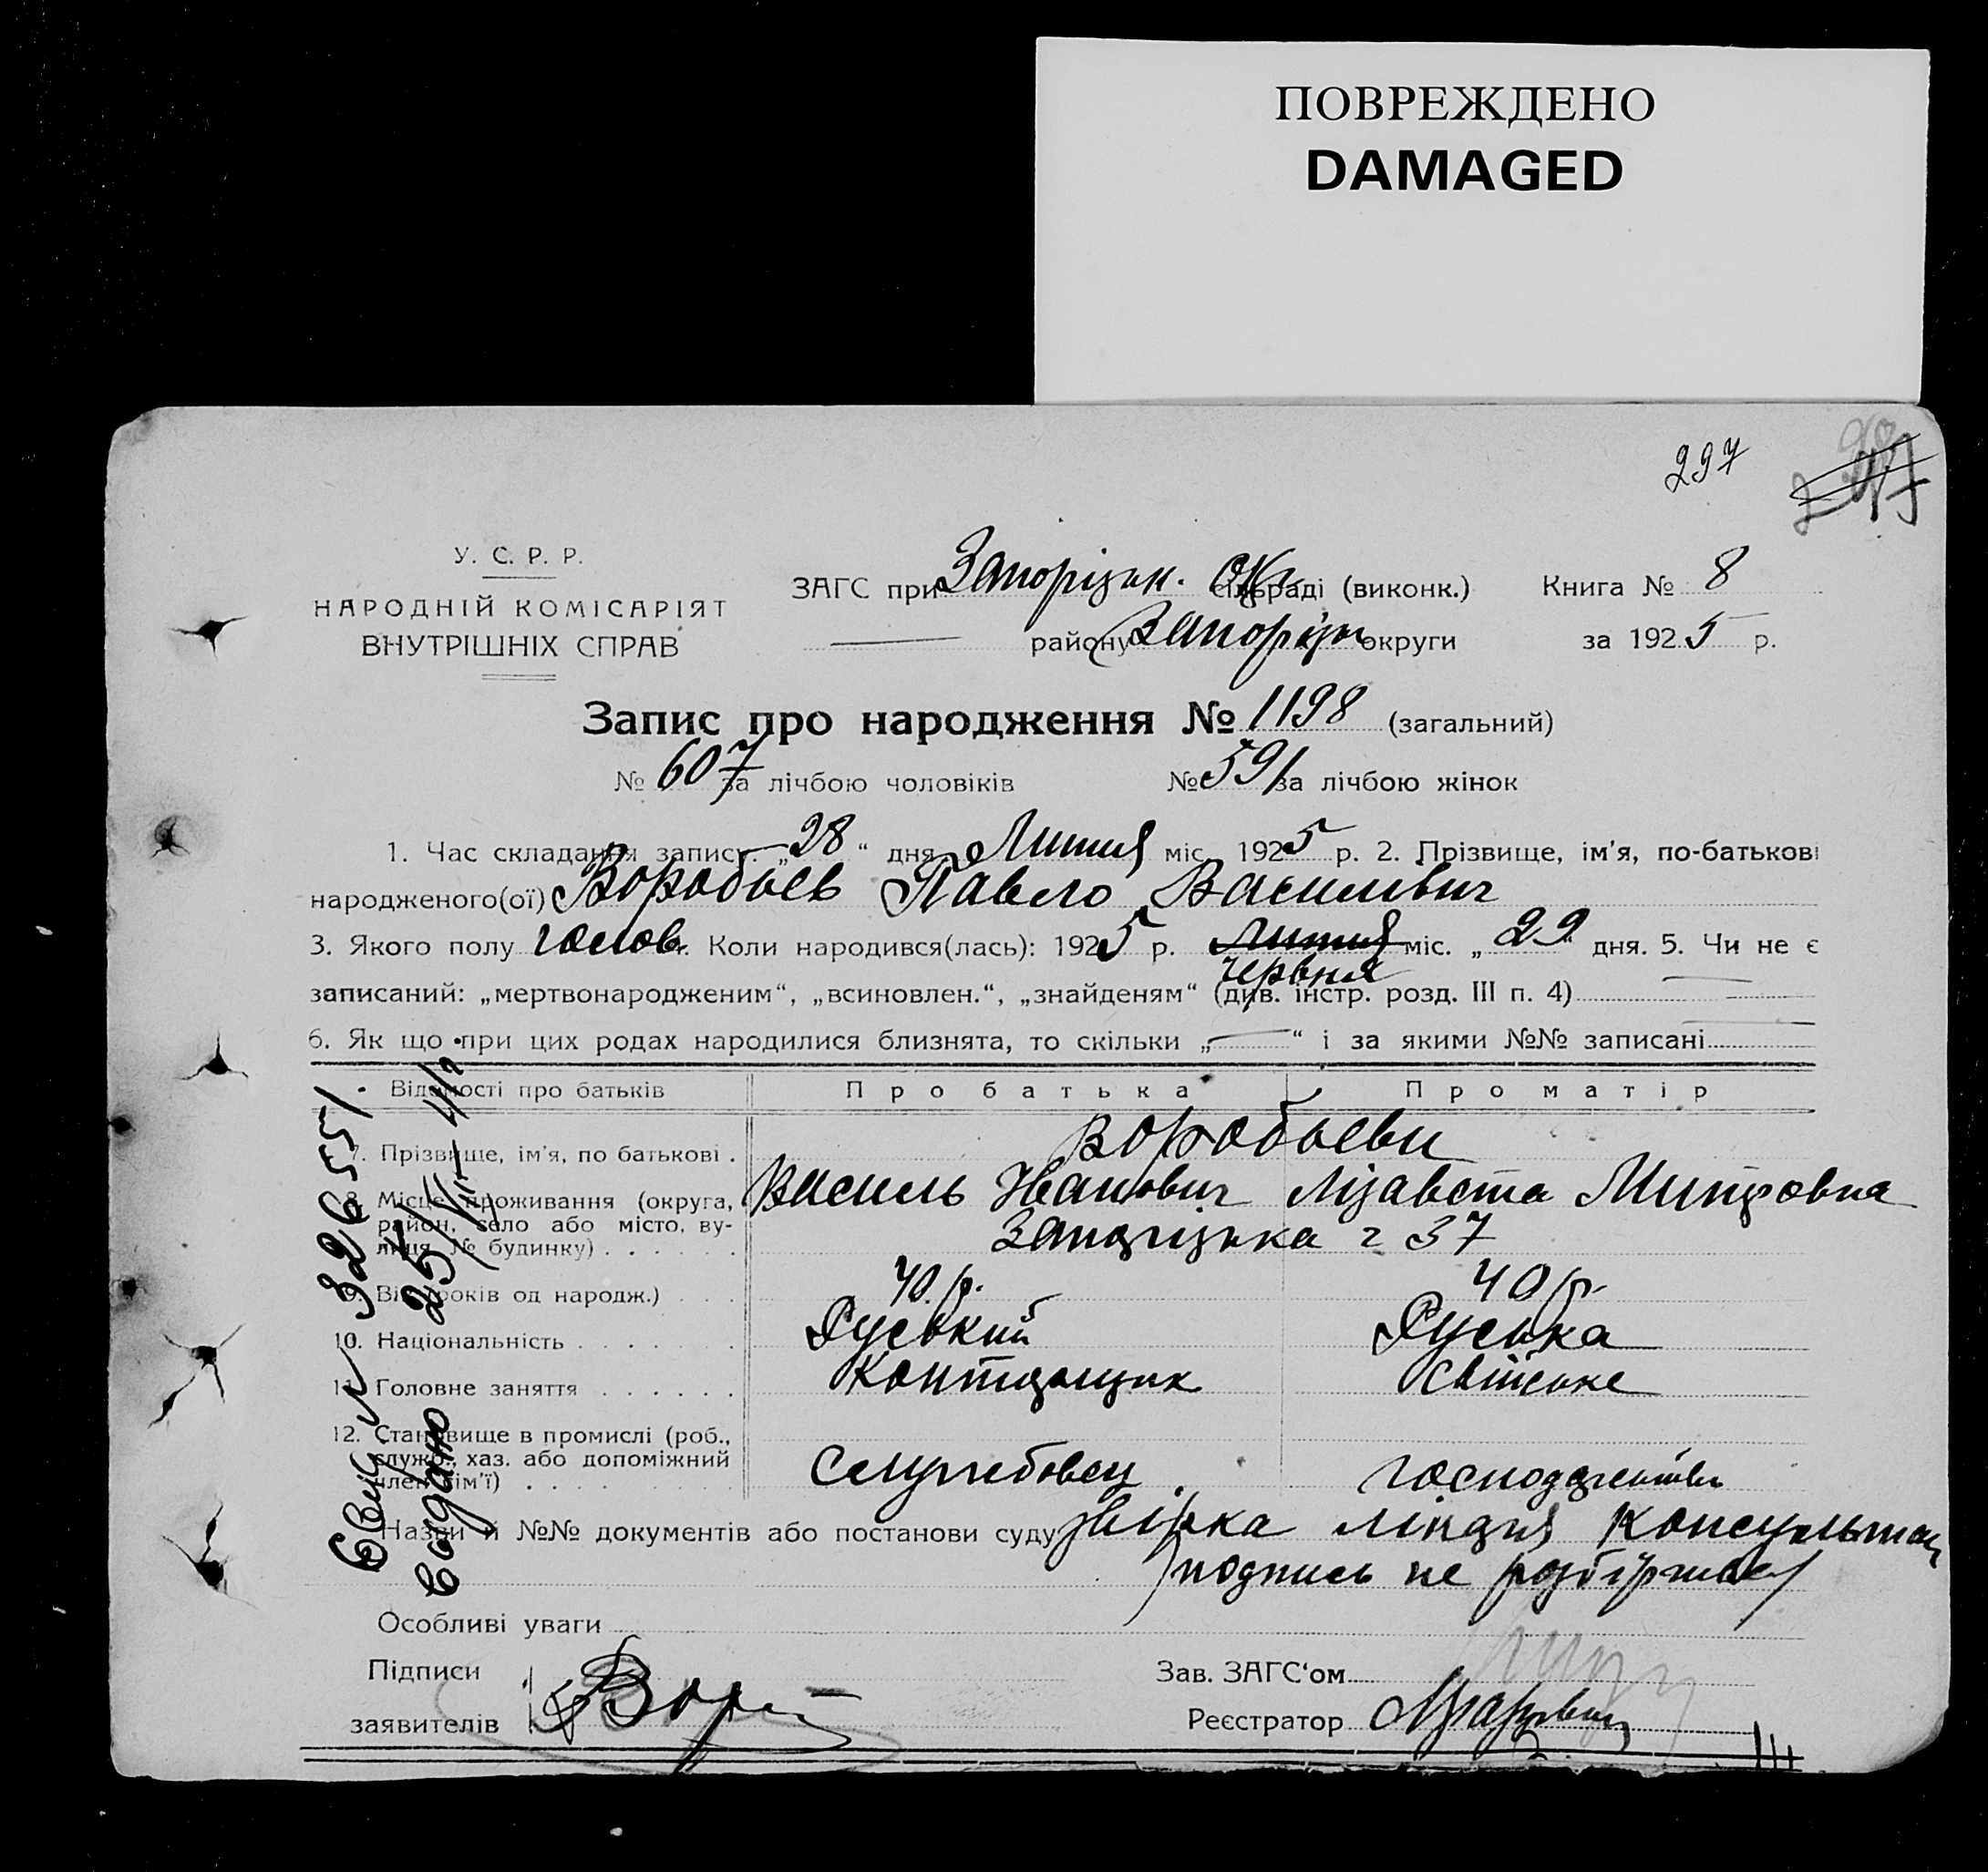 ПОВРЕЖДЕНО
DAMAGED
297
У. С. Р. Р.
НАРОДНІЙ КОМІСАРІЯТ
ВНУТРІШНІХ СПРАВ
ЗАГС при Запорізьк. Окр. сільраді (виконк.) Книга № 8
району Запорізьк округи за 1925 р.
Запис про народження № 1198 (загальний)
№ 607 за лічбою чоловіків № 591 за лічбою жінок
1. Час складання запису. „28“ дня Липня міс. 1925 р. 2. Прізвище, ім'я, по-батькові
народженого(ої) Воробьев Павло Васильвич
3. Якого полу чолов. 4. Коли народився(лась): 1925 р. Липня міс. „29“ дня. 5. Чи не є
червня
записаний: „мертвонародженим“, „всиновлен.“, „знайденям“ (див. інстр. розд. III п. 4)
6. Як що при цих родах народилися близнята, то скільки „—“ і за якими №№ записані
Відомості про батьків Про батька Про матір
7. Прізвище, ім'я, по батькові . Воробьеви
Василь Иванович Лізавета Митровна
8. Місце проживання (округа, район, село або місто, вулиця, № будинку) . . . . . . Запоріцька 37
9. Вік (років од народж.) . . . 40 р. 40 р.
10. Національність . . . . . . . Руський Руська
11. Головне заняття . . . . . . Конторщик Свійське
12. Становище в промислі (роб., служб., хаз. або допоміжний член сім'ї) . . . . Служебовец господарство
Назви й №№ документів або постанови суду консультац
подпись не розбірчива
Особливі уваги
Підписи Зав. ЗАГС'ом
заявителів Вор Реєстратор
326551
Видано 25/VII